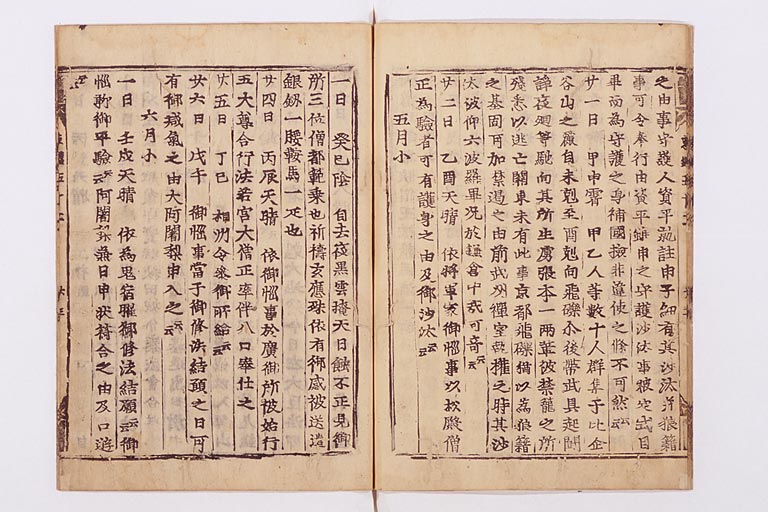 之由事守護人資平就註申子細有其沙汰於狼籍
事可令奉行由資平雖申之守護沙汰事被定式目
畢而為守護之身補國檢非違使之條不可然云云
廿一日 甲申霽 甲乙人等數十人群集于比企
谷山之麓自未剋至酉剋向飛礫尒後帶武具起鬪
諍夜廻等馳向其所生虜張本一兩輩被禁籠之所
殘悉以逃亡關東未有此事京都飛礫猶以為狼籍
之基固可加禁遏之由前武州禪室執權之時其沙
汰被仰六波羅畢況於鎌倉中哉可奇云云
廿二日 乙酉天晴 依將軍家御惱事以松殿僧
正為驗者可有護身之由及御沙汰云云
五月小
一日 癸巳陰 自去夜黑雲掩天日蝕不正見御
所三位僧都範乘也祈禱玄應殊依有御感被送遣
銀劔一腰鞍馬一疋也
廿四日 丙辰天晴 依御惱事於廣御所被始行
五大尊合行法若宮大僧正率伴八口奉仕之
廿五日 丁巳 相州令參御所給云云
廿六日 戊午 御惱事當于御修法結願之日可
有御減氣之由大阿闍梨申入之云云
六月小
一日 壬戌天晴 依為鬼宿曜御修法結願云云御
惱軟御平驗云云阿闍梨兼日申狀符合之由及口遊
云云